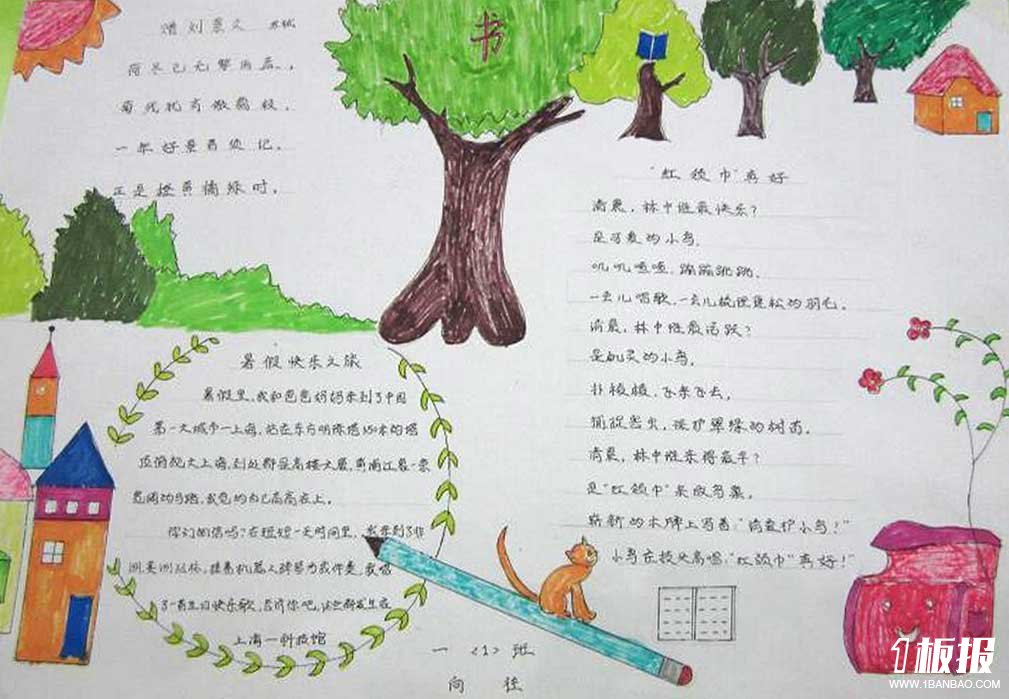 赠刘景文 苏轼
荷尽已无擎雨盖,
菊残犹有傲霜枝.
一年好景君须记,
正是橙黄橘绿时.
书
"红领巾"真好
清晨,林中谁最快乐?
是可爱的小鸟,
叽叽喳喳,蹦蹦跳跳,
一会儿唱歌,一会儿梳理蓬松的羽毛.
清晨,林中谁最活跃?
是机灵的小鸟,
扑棱棱,飞来飞去,
捕捉害虫,保护翠绿的树苗.
清晨,林中谁来得最早?
是"红领巾"来放鸟巢.
崭新的木牌上写着"请爱护小鸟!"
小鸟在枝头高唱:"红领巾"真好!"
暑假快乐之旅
暑假里,我和爸爸妈妈来到了中国
第一大城市—上海,站在东方明珠塔350米的塔
顶俯视大上海,到处都是高楼大厦,黄浦江像一条
宽阔的马路,我觉的自己高高在上.
你们相信吗?在短短一天时间里,我来到了非
洲,美洲丛林,接着机器人弹琴为我伴奏,我唱
了一首生日快乐歌,告诉你吧,这些都发生在
上海—科技馆
一〈1〉班
向 往
1板报
WWW.1BANBAO.COM